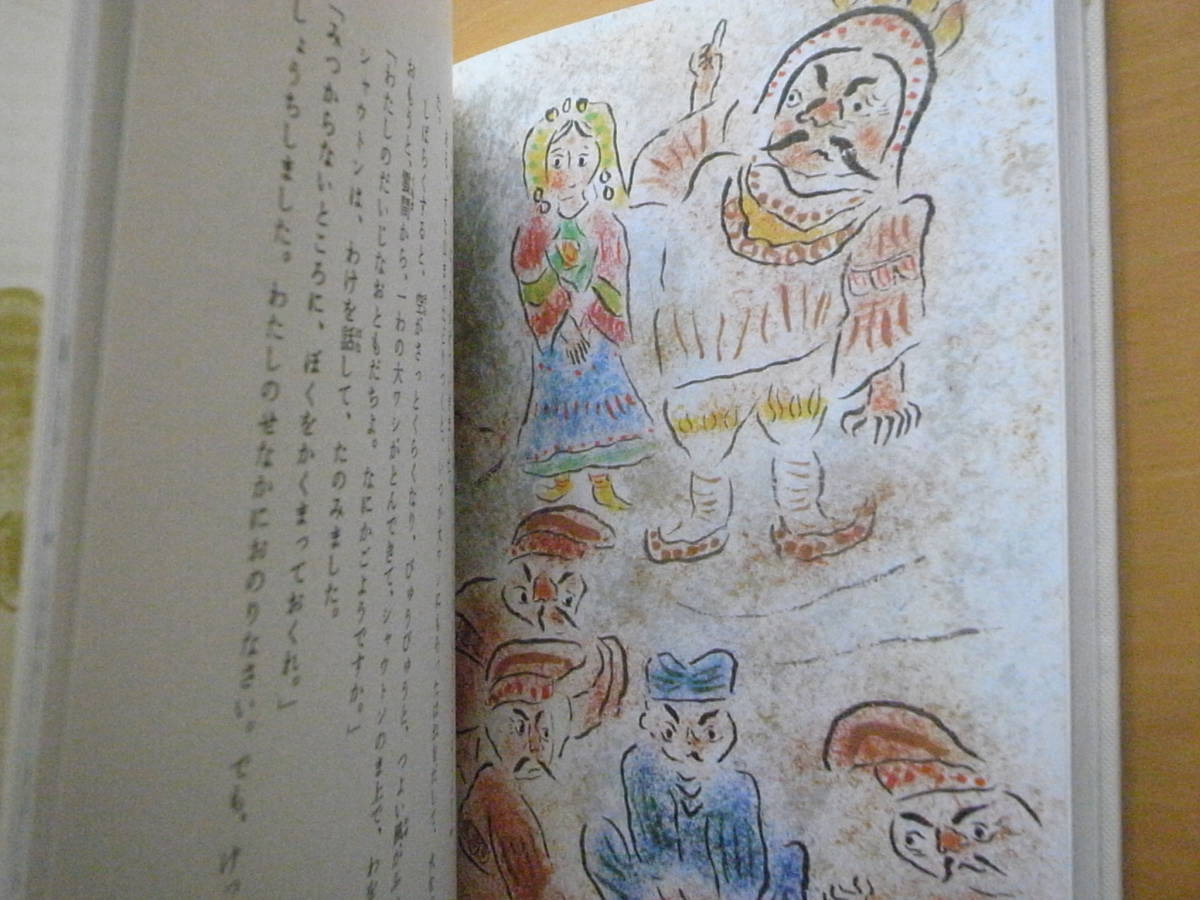 しばらくすると、空がさっとくらくなり、びゅうびゅうと、つよい風が
おもうと、雲間から、一わの大ワシがとんできて、シャウトンのま上で、わ
「わたしのだいじなおともだちよ。なにかごようですか。」
シャウトンは、わけを話して、たのみました。
「みつからないところに、ぼくをかくまっておくれ。」
しょうちしました。わたしのせなかにおのりなさい。でも、けっ